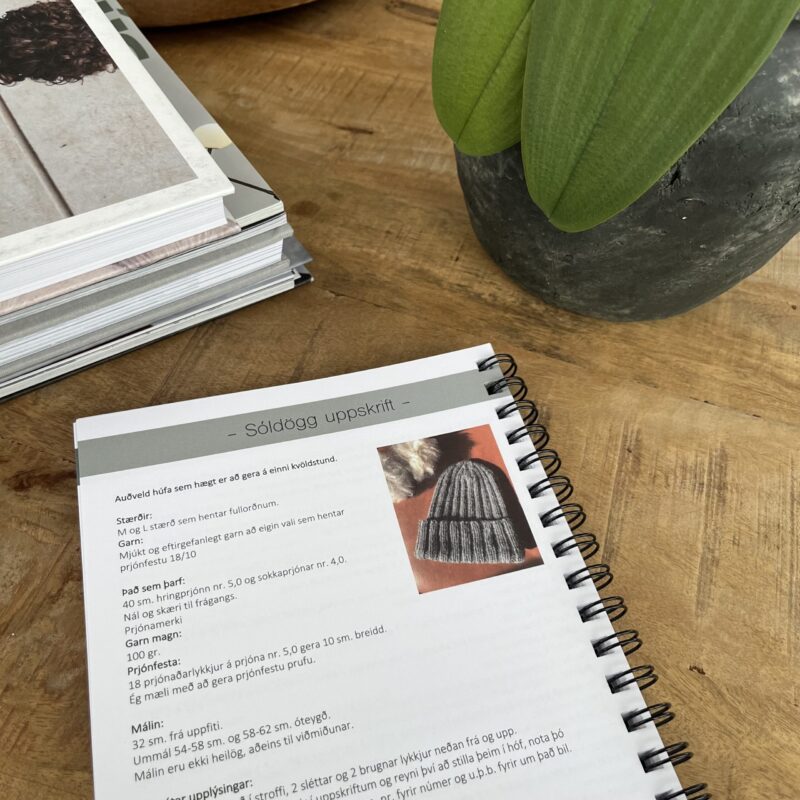 – Sóldögg uppskrift –
Auðveld húfa sem hægt er að gera á einni kvöldstund.
Stærðir:
M og L stærð sem hentar fullorðnum.
Garn:
Mjúkt og eftirgefanlegt garn að eigin vali sem hentar
prjónfestu 18/10
Það sem þarf:
40 sm. hringprjónn nr. 5,0 og sokkaprjónar nr. 4,0.
Nál og skæri til frágangs.
Prjónamerki
Garn magn:
100 gr.
Prjónfesta:
18 prjónaðarlykkjur á prjóna nr. 5,0 gera 10 sm. breidd.
Ég mæli með að gera prjónfestu prufu.
Málin:
32 sm. frá uppfiti.
Ummál 54-58 sm. og 58-62 sm. óteygð.
Málin eru ekki heilög, aðeins til viðmiðunar.
upplýsingar:
í stroffi, 2 sléttar og 2 brugnar lykkjur neðan frá og upp.
í uppskriftum og reyni því að stilla þeim í hóf, nota þó
nr. fyrir númer og u.þ.b. fyrir um það bil.